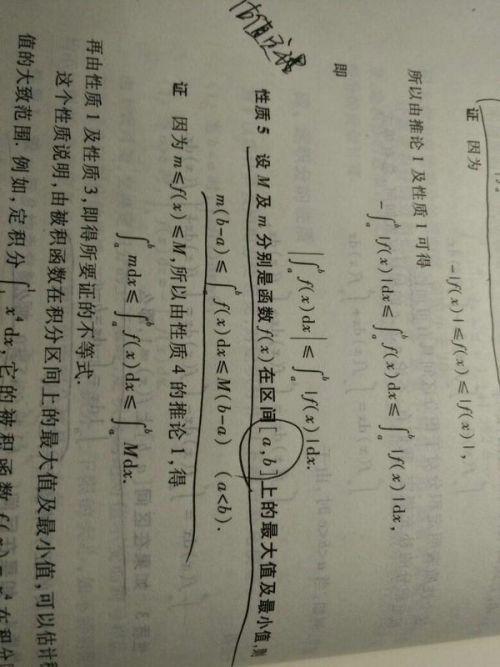 证 因为
-|f(x)|≤f(x)≤|f(x)|,
所以由推论1及性质1可得
-∫ₐᵇ|f(x)|dx≤∫ₐᵇf(x)dx≤∫ₐᵇ|f(x)|dx,
即
|∫ₐᵇf(x)dx|≤∫ₐᵇ|f(x)|dx.
性质5 设M及m分别是函数f(x)在区间[a,b]上的最大值及最小值,则
m(b-a)≤∫ₐᵇf(x)dx≤M(b-a) (a<b).
证 因为m≤f(x)≤M,所以由性质4的推论1,得
∫ₐᵇmdx≤∫ₐᵇf(x)dx≤∫ₐᵇMdx.
再由性质1及性质3,即得所要证的不等式.
这个性质说明,由被积函数在积分区间上的最大值及最小值,可以估计
值的大致范围.例如,定积分∫ x⁴dx,它的被积函数f(x)=x⁴在积分